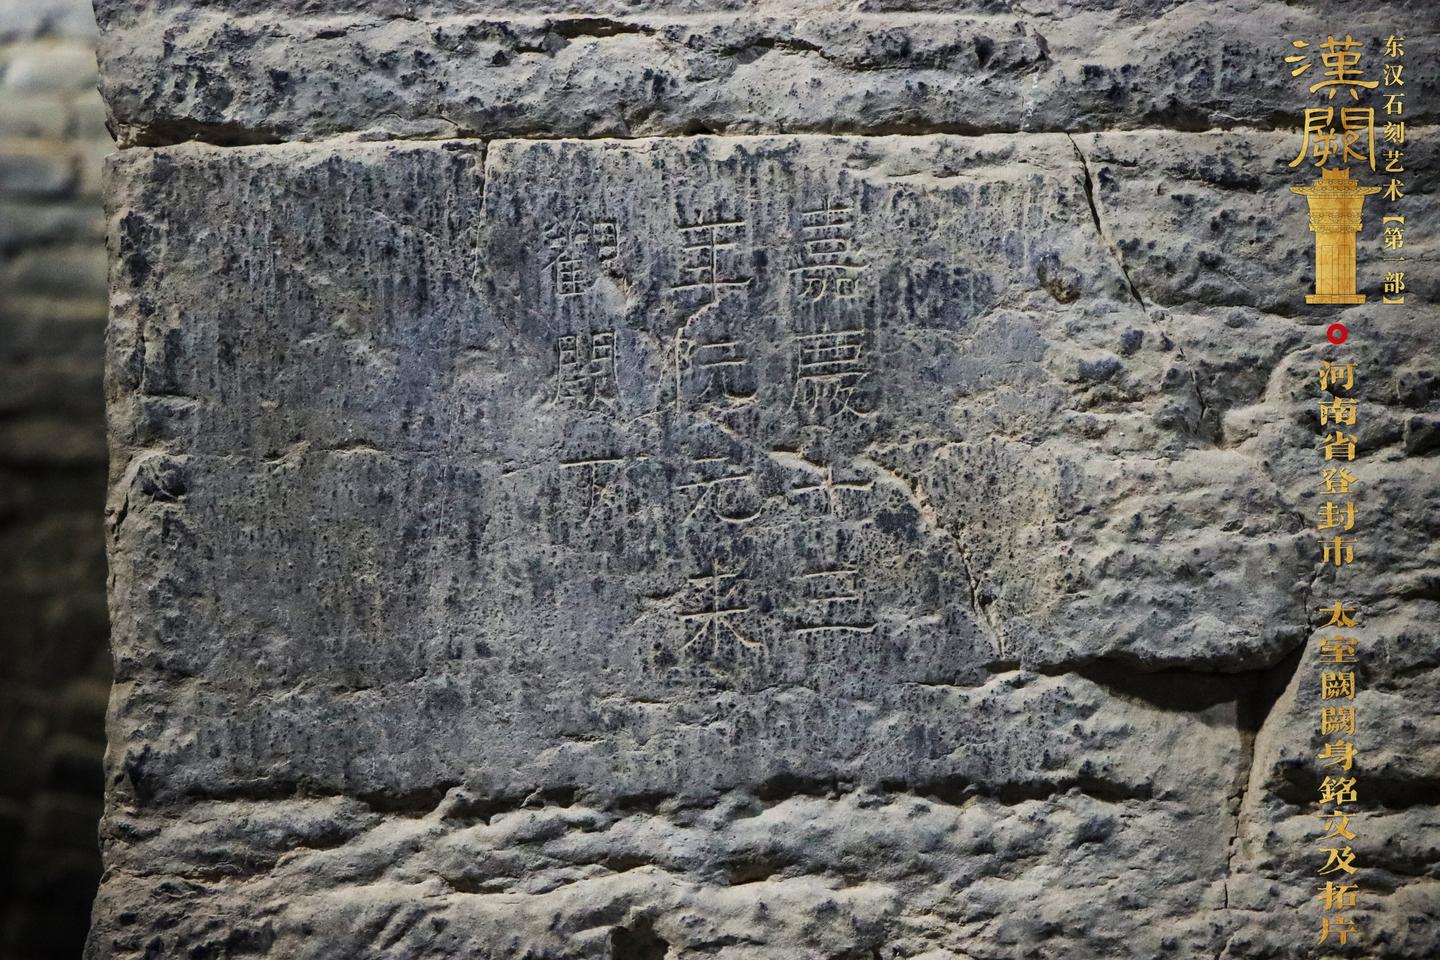 东汉石刻艺术【第一部】
漢闕
河南省登封市 太室闕闕身銘文及拓片
嘉慶十三
年阮元来
觀闕下